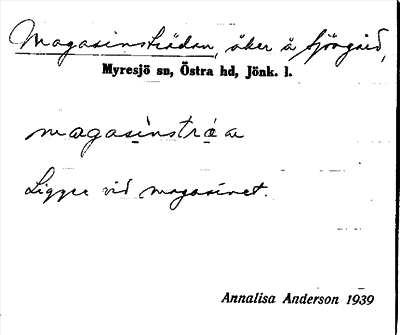 Magasinsträdan, åker å Sjögård,
Myresjö sn, Östra hd, Jönk. l.
magasinstráa
Ligger vid magasinet.
Annalisa Anderson 1939